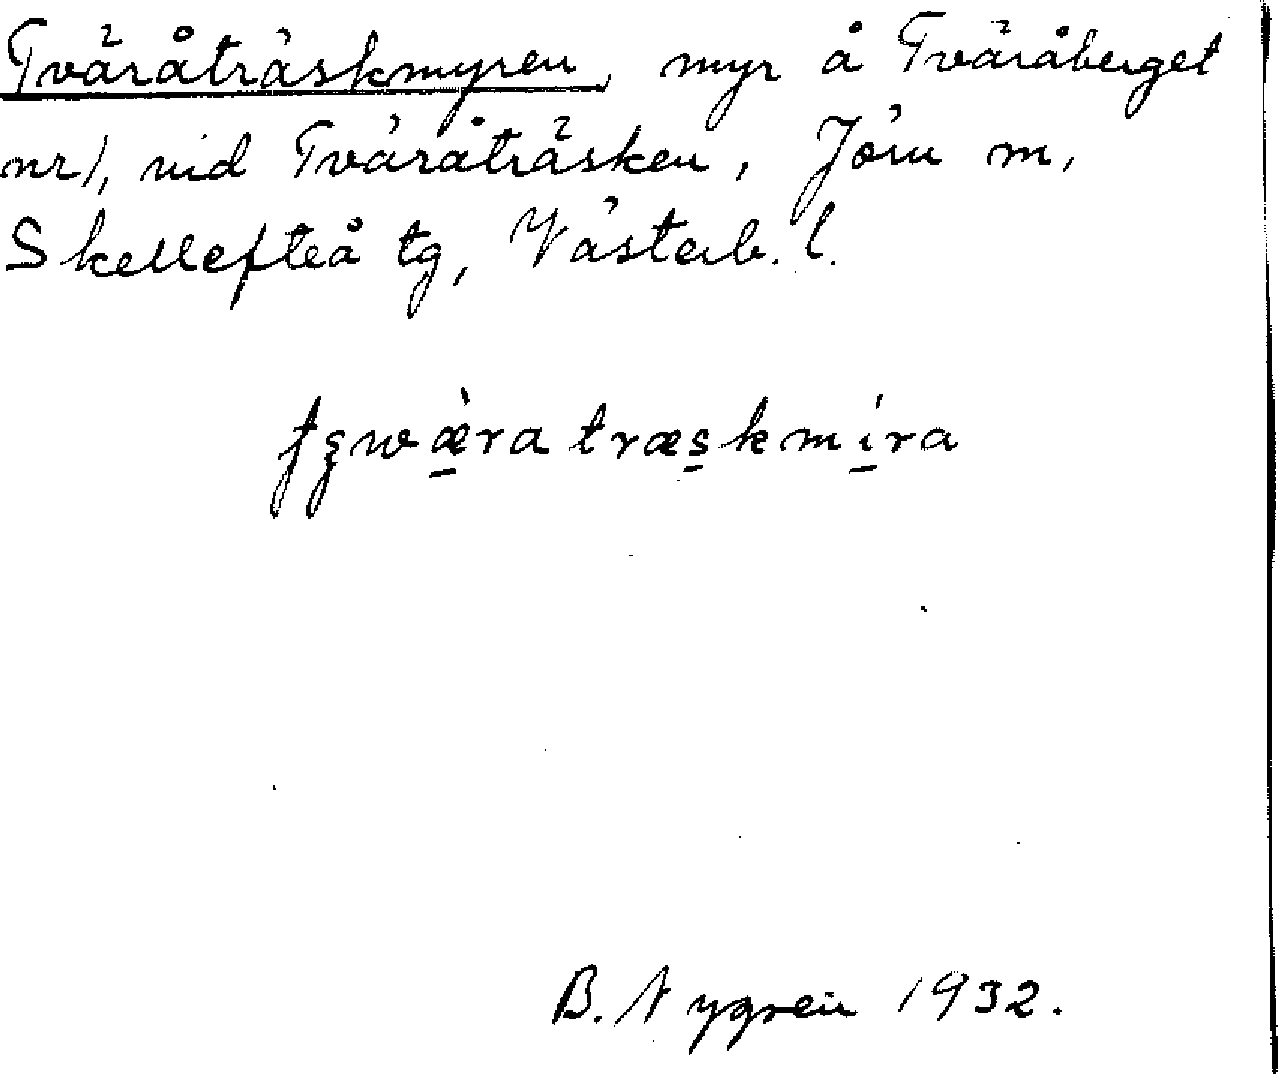 Tväråträskmyren, myr å Tväråberget
nr 1, vid Tväråträsken, Jörn m,
Skellefteå tg, Västerb. l.
B. Nygren 1932.